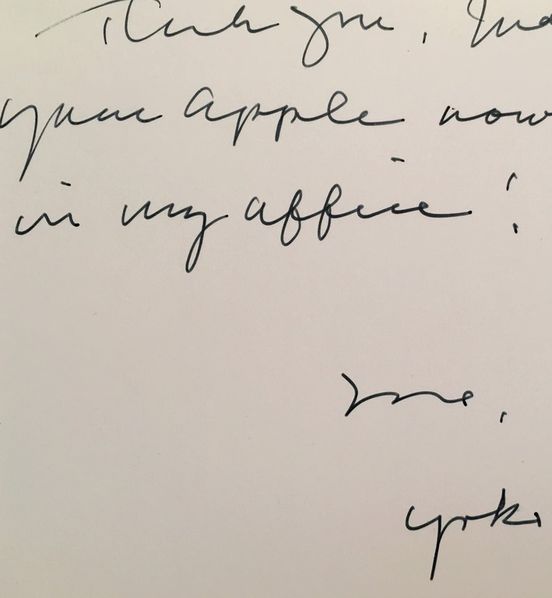 Thank you,
your apple now
in my office!
yoko